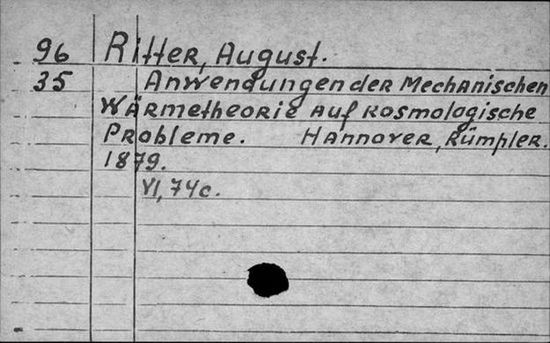 96 Ritter, August.
35 Anwendungen der Mechanischen
Wärmetheorie auf Kosmologische
Probleme. Hannover, Rümpler.
1879.
VI, 74c.